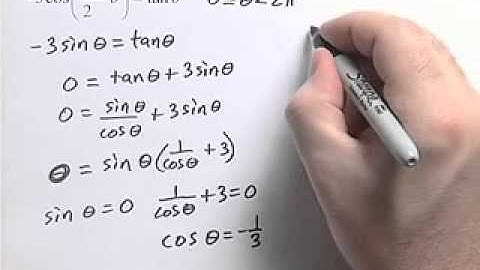 cos(π/2 - θ) = tan θ 0 ≤ θ < 2π
-3 sin θ = tan θ
0 = tan θ + 3 sin θ
0 = sin θ/cos θ + 3 sin θ
0 = sin θ (1/cos θ + 3)
sin θ = 0 1/cos θ + 3 = 0
cos θ = -1/3
Sharpie